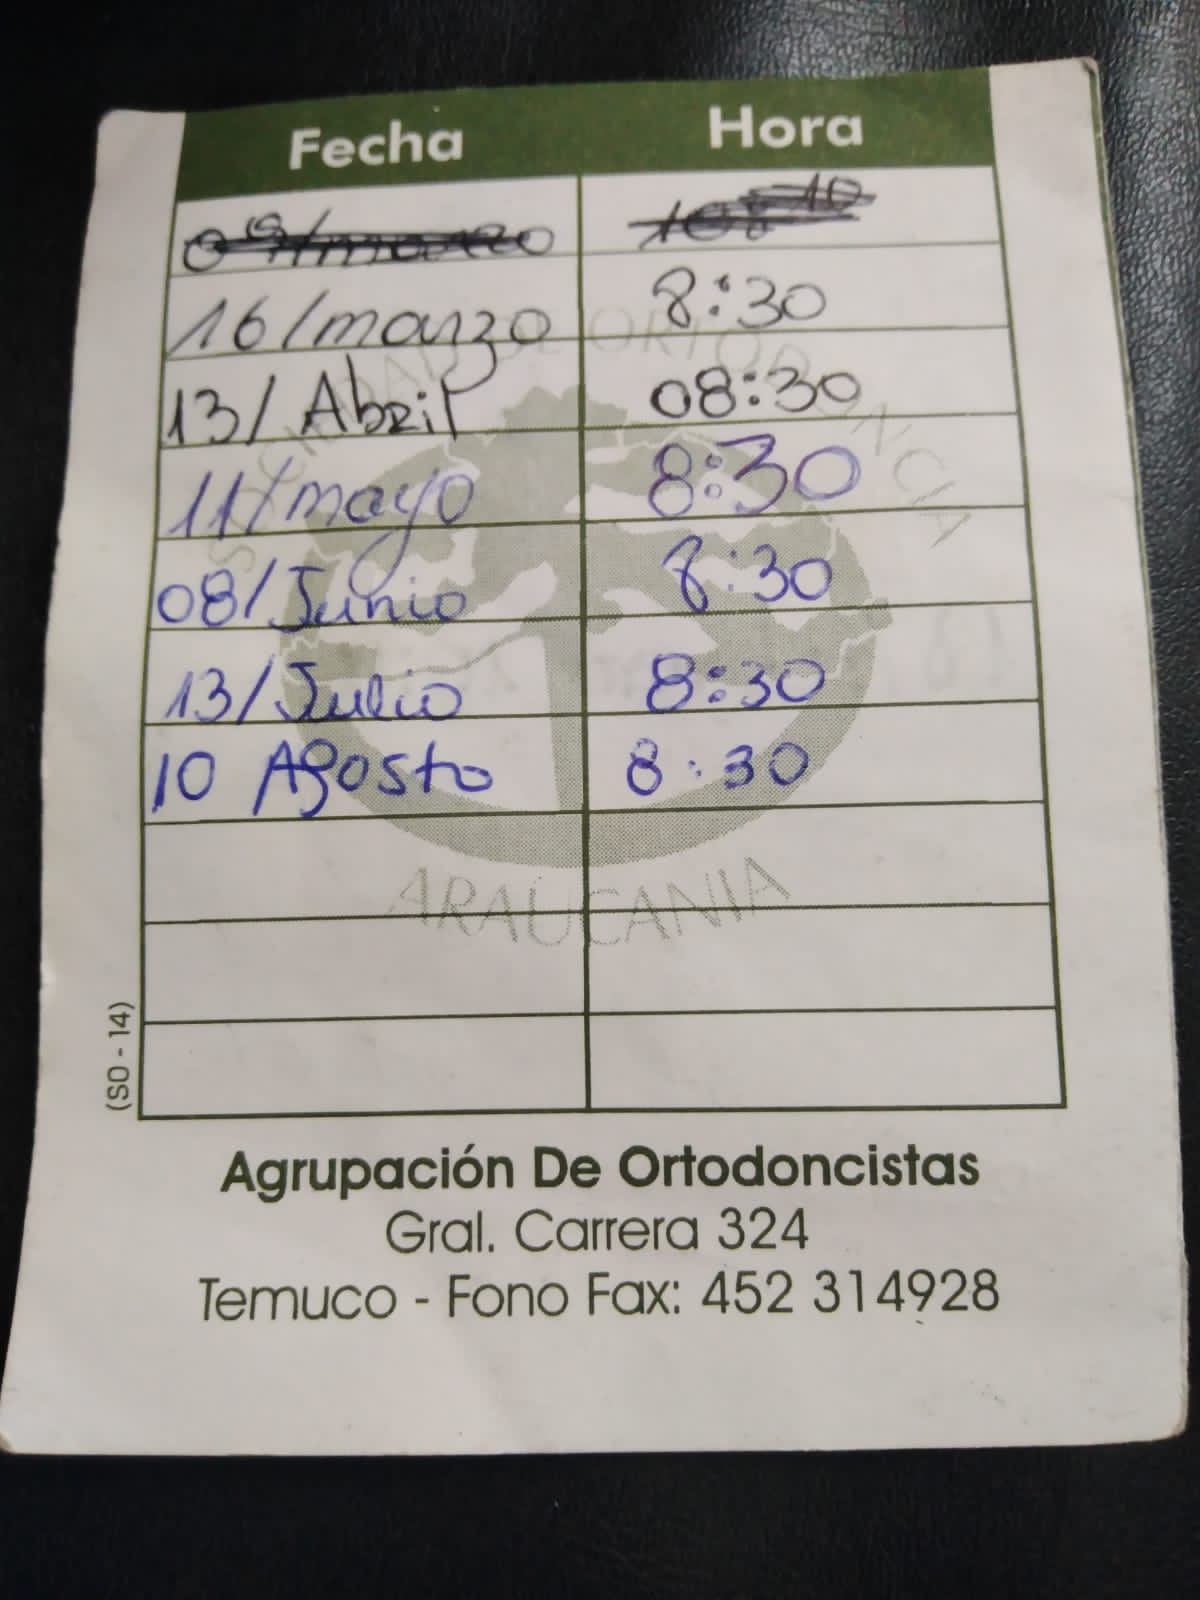 Fecha Hora
09/marzo
16/marzo 8:30
13/Abril 08:30
11/mayo 8:30
08/Junio 8:30
13/Julio 8:30
10 Agosto 8:30
SOCIEDAD DE ORTODONCIA
ARAUCANIA
(SO - 14)
Agrupación De Ortodoncistas
Gral. Carrera 324
Temuco - Fono Fax: 452 314928